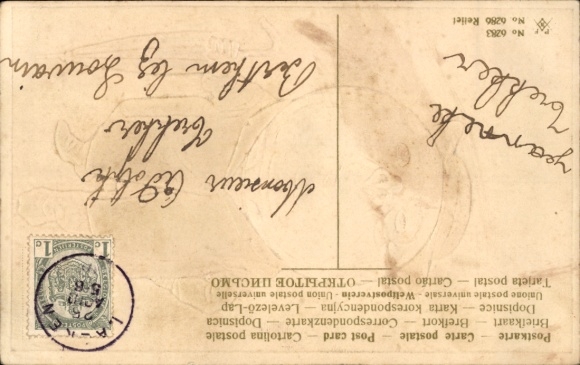 Postkarte — Carte postale — Post card — Cartolina postale
Briefkaart — Brefkort — Correspondenzkarte — Dopisnica
Dopisnice — Karta korespondencyjna — Levelező-Lap
Union postale universelle — Weltpostverein — Unione postale universale
Tarjeta postal — Cartão postal — ОТКРЫТОЕ ПИСЬМО
1c 1c
25
5-6
Monsieur Adolph
Trekker
Berthem lez Louvain
Jeanneke
Trekker
No 6283
No 6286 Relief